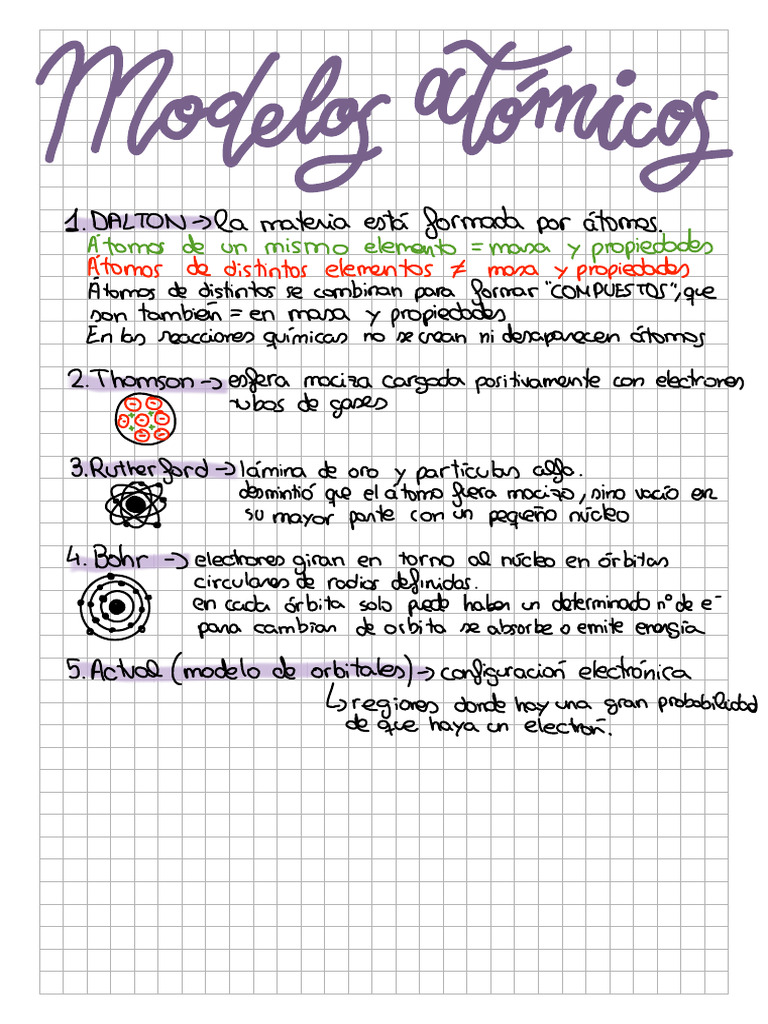 Modelos atómicos
1. DALTON → la materia está formada por átomos.
Átomos de un mismo elemento = masa y propiedades
Átomos de distintos elementos ≠ masa y propiedades
Átomos de distintos se combinan para formar "COMPUESTOS", que
son también = en masa y propiedades
En las reacciones químicas no se crean ni desaparecen átomos
2. Thomson → esfera maciza cargada positivamente con electrones
tubos de gases
3. Rutherford → lámina de oro y partículas alfa.
desmintió que el átomo fuera macizo, sino vacío en
su mayor parte con un pequeño núcleo
4. Bohr → electrones giran en torno al núcleo en órbitas
circulares de radios definidos.
en cada órbita solo puede haber un determinado nº de e⁻
para cambiar de orbita se absorbe o emite energía
5. Actual (modelo de orbitales) → configuración electrónica
↳ regiones donde hay una gran probabilidad
de que haya un electrón.